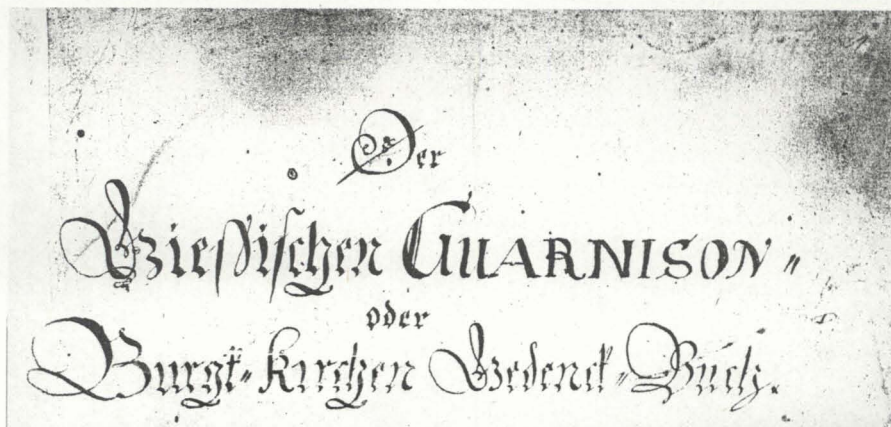 Der
Giesischen GUARNISON-
oder
Burgk-Kirchen Gedenck-Buch.